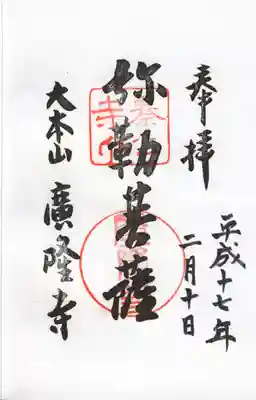 奉拝
平成十七年
二月十日
弥勒菩薩
大本山
廣隆寺